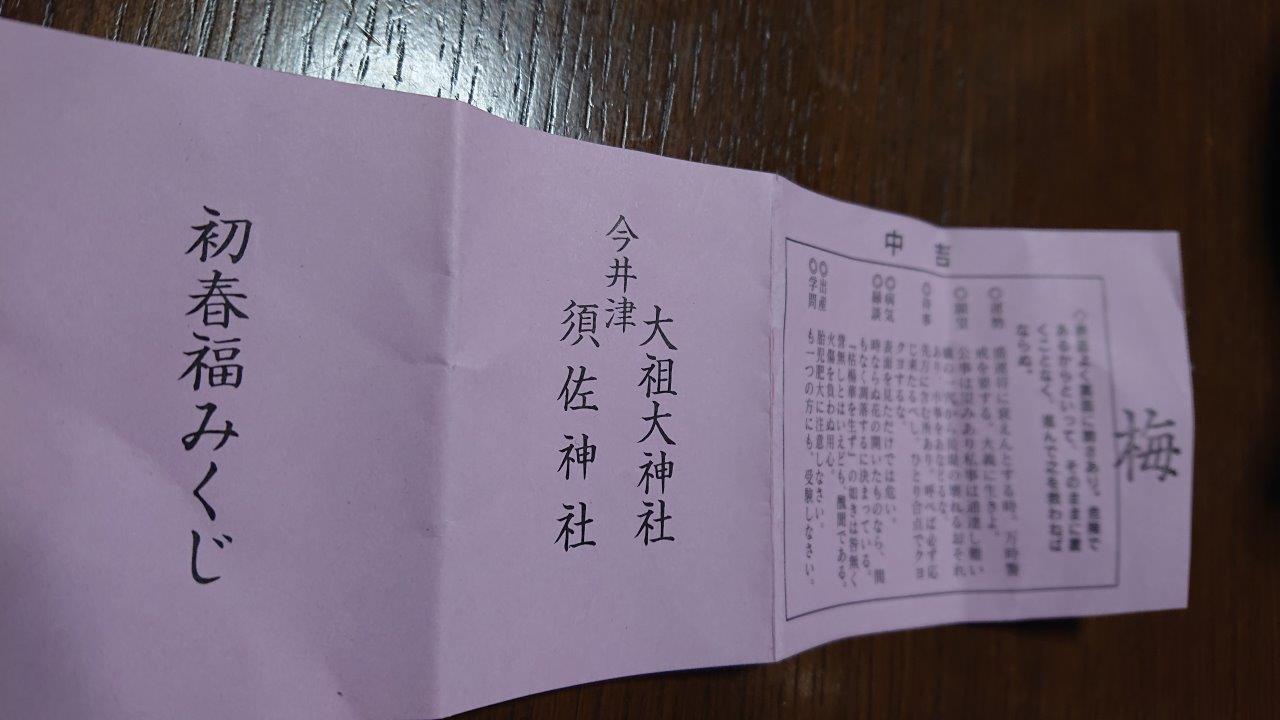 梅
中吉
あるからといって、そのままに置
くことなく、進んで之を救わねば
ならぬ。
◎運勢
盛運将に衰えんとする時。万時警
戒を要する。大義に生きよ。
◎願望
公事は望みあり私事は通達し難い
あり。小事をあなどるな。
◎待事
先方に含む所あり。呼べば必ず応
じ来たるべし。ひとり合点でクヨ
クヨするな。
◎病気
表面を見ただけでは危い。
◎縁談
時ならぬ花の開いたものなら、間
もなく凋落するに決まっている。
『枯楊華を生ず』の如きは咎無く
誉無しとはいえども、醜聞である。
火傷を負わぬ用心。
◎出産
胎児肥大に注意しなさい。
◎学問
も一つの方にも、受験しなさい。
大祖大神社
今井津
須佐神社
初春福みくじ